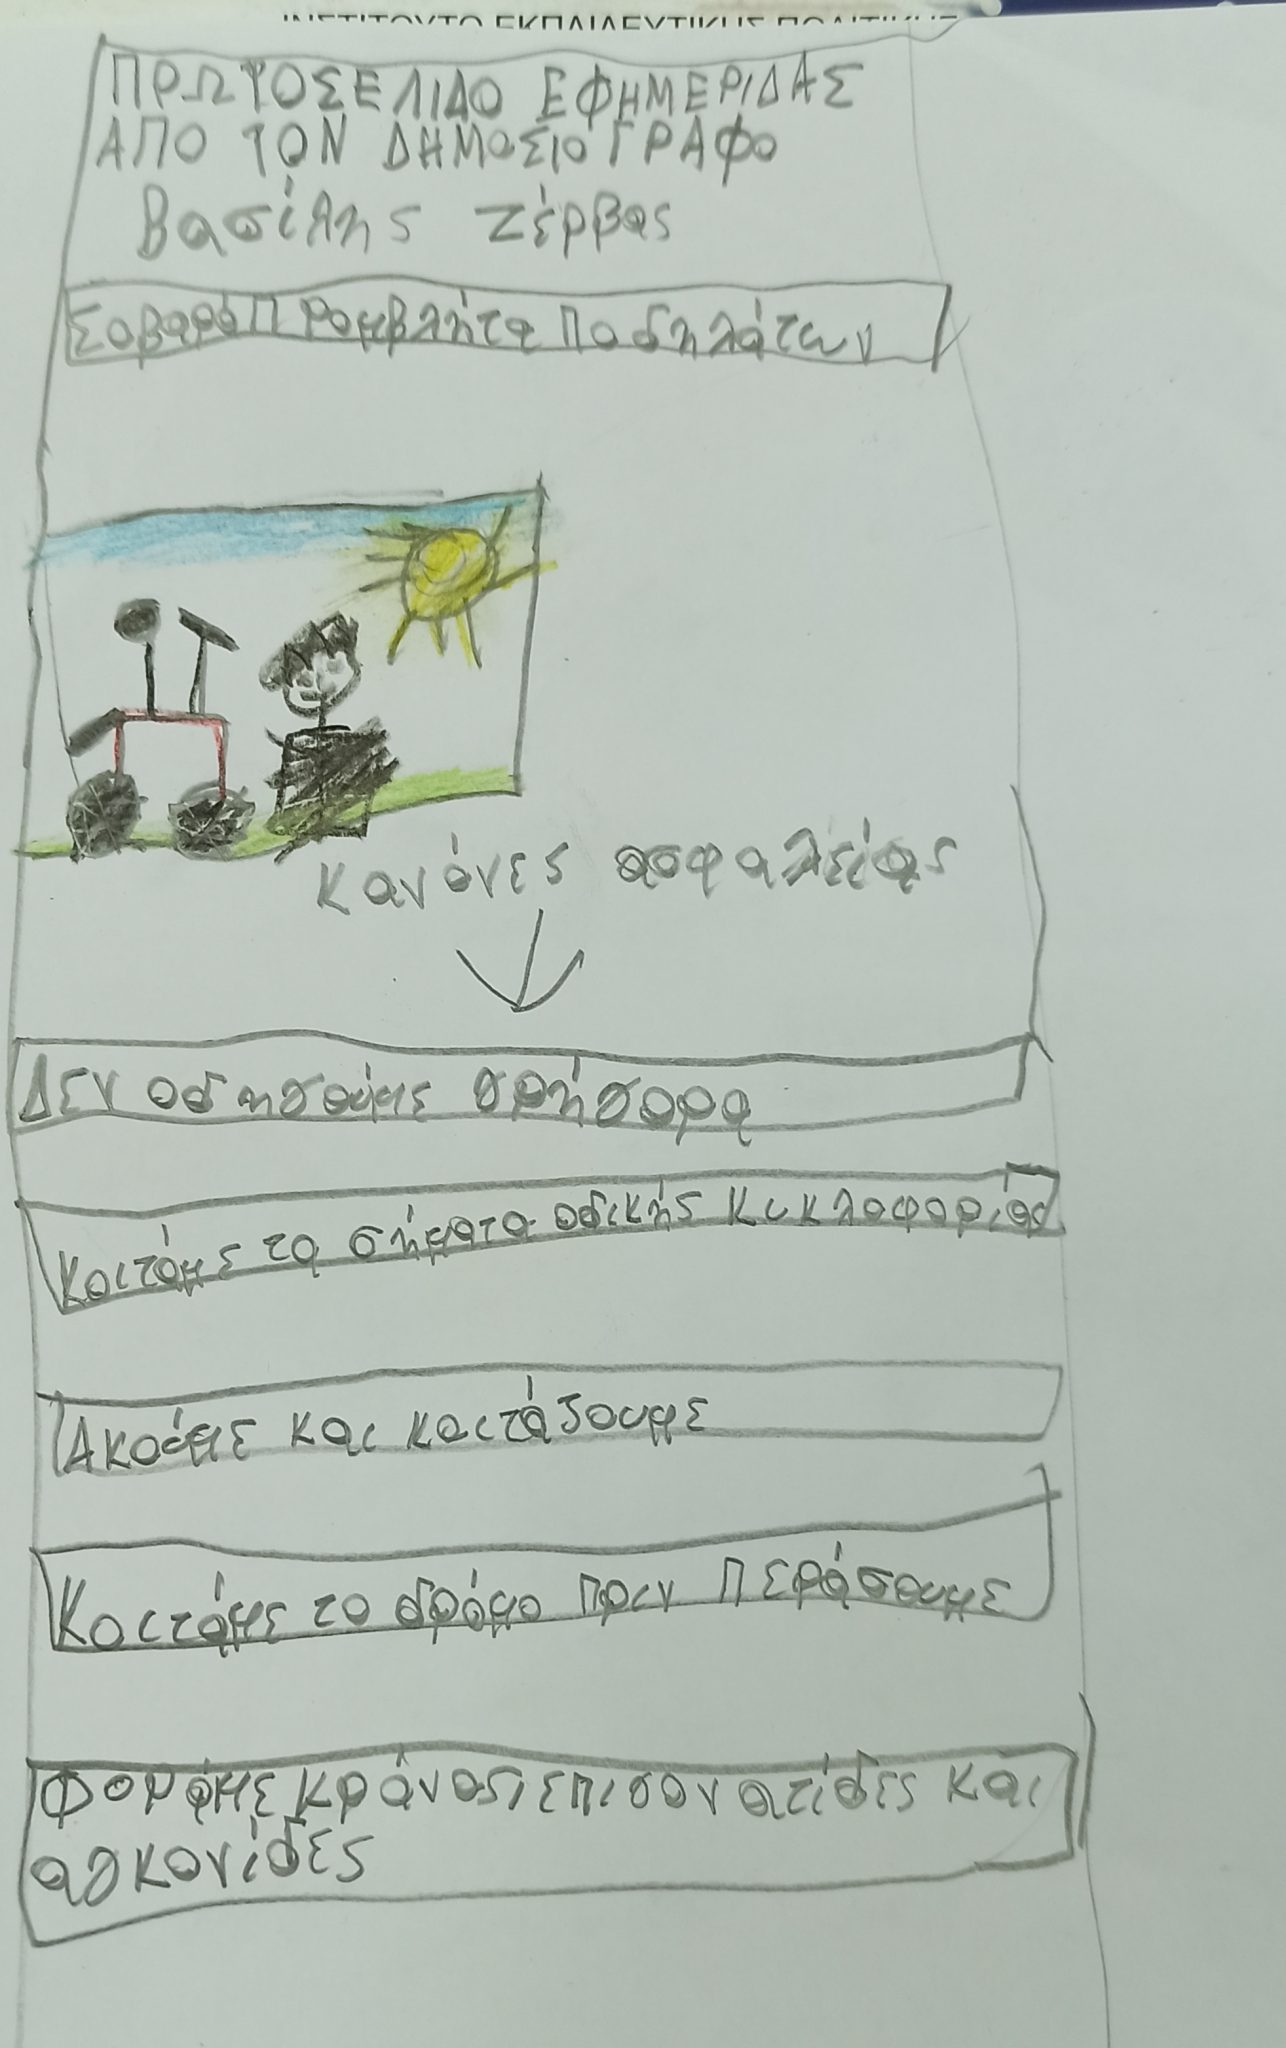 ΙΝΣΤΙΤΟΥΤΟ ΕΚΠΑΙΔΕΥΤΙΚΗΣ ΠΟΛΙΤΙΚΗΣ
ΠΡΩΤΟΣΕΛΙΔΟ ΕΦΗΜΕΡΙΔΑΣ
ΑΠΟ ΤΟΝ ΔΗΜΟΣΙΟΓΡΑΦΟ
Βασίλης Ζέρβας
Σοβαρό Ποδηλάτων
Κανόνες ασφαλείας
Δεν οδηγούμε γρήγορα
Κοιτάμε τα σήματα οδικής κυκλοφορίας
Ακούμε και κοιτάζουμε
Κοιτάμε το δρόμο πριν Περάσουμε
Φοράμε κράνος και
αγκονίδες